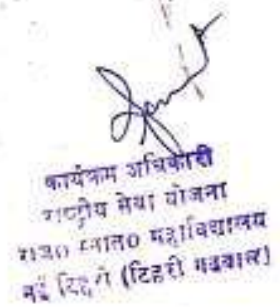 कार्यक्रम अधिकारी
राष्ट्रीय सेवा योजना
राज० स्नात० महाविद्यालय
नई टिहरी (टिहरी गढवाल)